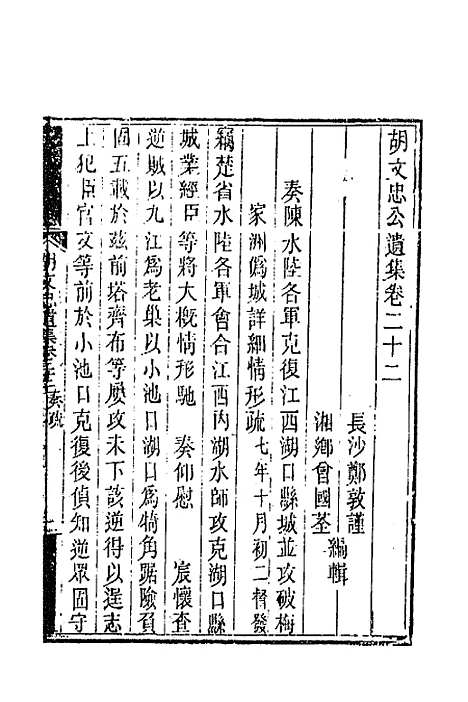 胡文忠公遺集卷二十二
長沙鄭敦謹
湘鄉曾國荃
編輯
奏陳水陸各軍克復江西湖口縣城並攻破梅
家洲僞城詳細情形疏 七年十月初二督發
竊楚省水陸各軍會合江西內湖水師攻克湖口縣
城業經臣等將大概情形馳 奏仰慰 宸懷查
逆賊以九江爲老巢以小池口湖口爲犄角踞險負
固五載於茲前塔齊布等屢攻未下該逆得以逞志
上犯臣官文等前於小池口克復後偵知逆眾固守